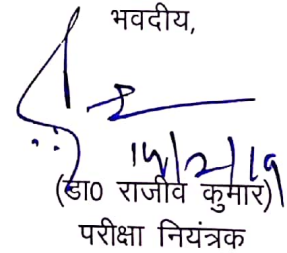 भवदीय,
(डा0 राजीव कुमार)
परीक्षा नियंत्रक